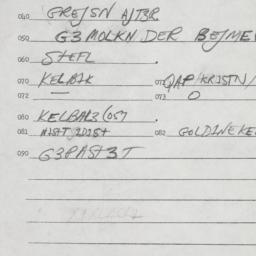 040 GREJSN AJT3R
050 G3 MOLKN DER BEJME
060 STEFL
070 KELBIK 072 QAP/KRISTN/
072 — 073 O
080 KELBAL3 (057 .
081 NIST IDIST 082 GOLDINE KE
090 G3PAST3T